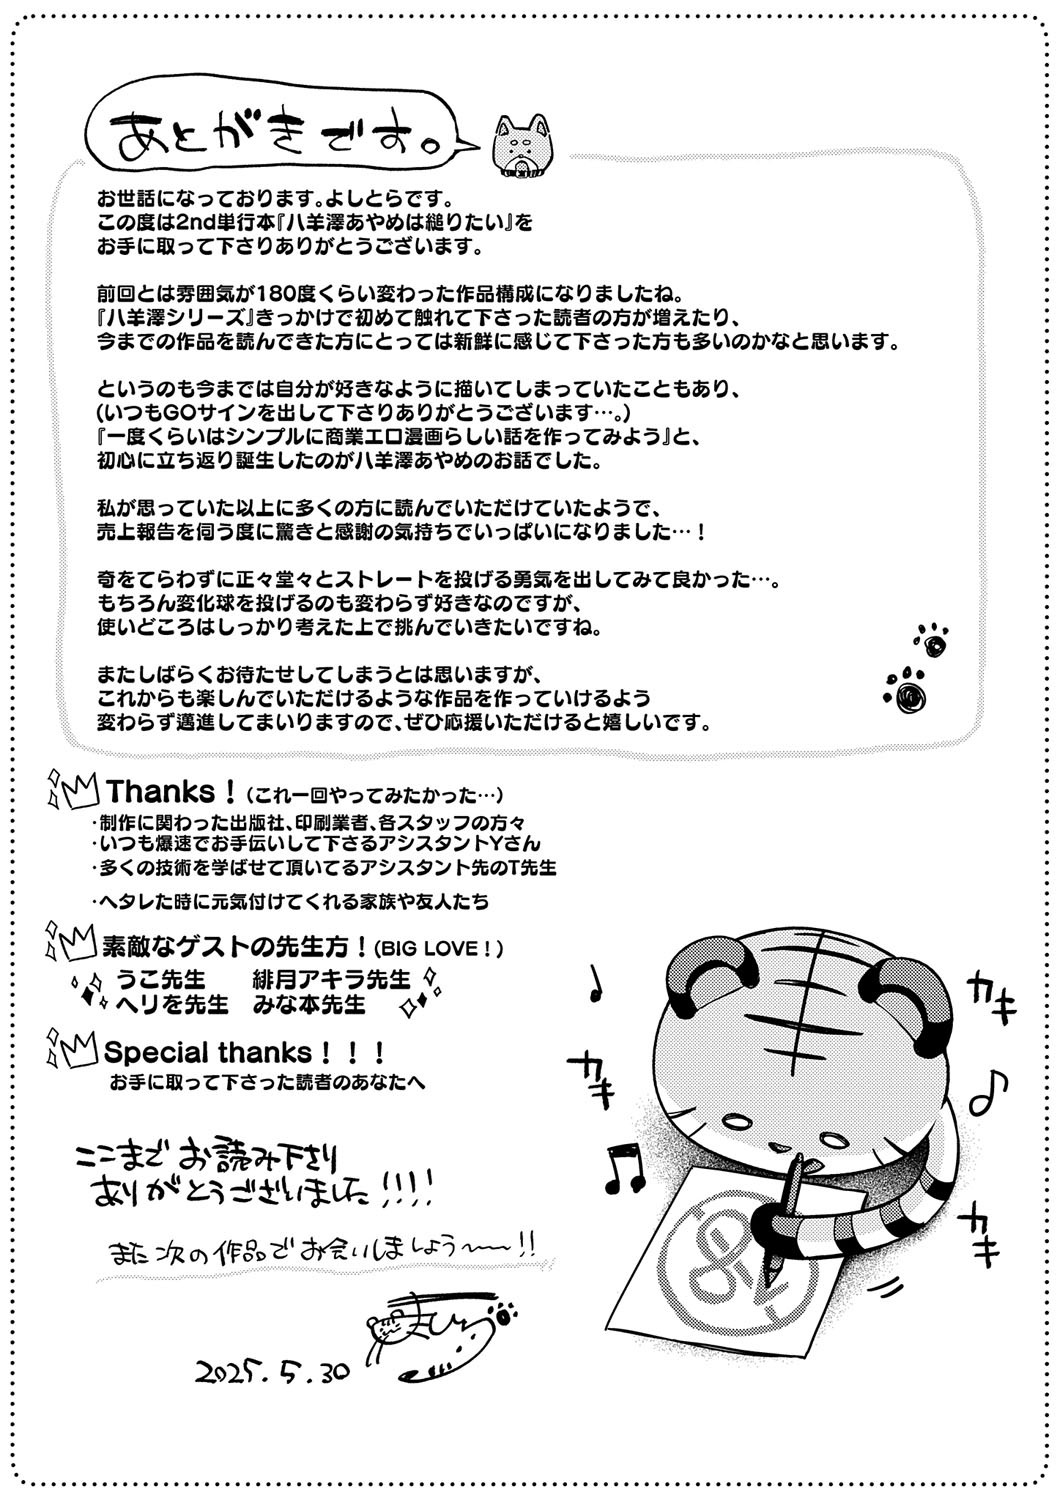 あとがきです。
お世話になっております。よしとらです。
この度は2nd単行本『八羊澤あやめは縋りたい』を
お手に取って下さりありがとうございます。
前回とは雰囲気が180度くらい変わった作品構成になりましたね。
『八羊澤シリーズ』きっかけで初めて触れて下さった読者の方が増えたり、
今までの作品を読んできた方にとっては新鮮に感じて下さった方も多いのかなと思います。
というのも今までは自分が好きなように描いてしまっていたこともあり、
(いつもGOサインを出して下さりありがとうございます…。)
『一度くらいはシンプルに商業エロ漫画らしい話を作ってみよう』と、
初心に立ち返り誕生したのが八羊澤あやめのお話でした。
私が思っていた以上に多くの方に読んでいただけていたようで、
売上報告を伺う度に驚きと感謝の気持ちでいっぱいになりました…！
奇をてらわずに正々堂々とストレートを投げる勇気を出してみて良かった…。
もちろん変化球を投げるのも変わらず好きなのですが、
使いどころはしっかり考えた上で挑んでいきたいですね。
またしばらくお待たせしてしまうとは思いますが、
これからも楽しんでいただけるような作品を作っていけるよう
変わらず邁進してまいりますので、ぜひ応援いただけると嬉しいです。
Thanks！(これ一回やってみたかった…)
・制作に関わった出版社、印刷業者、各スタッフの方々
・いつも爆速でお手伝いして下さるアシスタントYさん
・多くの技術を学ばせて頂いてるアシスタント先のT先生
・ヘタレた時に元気付けてくれる家族や友人たち
素敵なゲストの先生方！(BIG LOVE！)
うこ先生　緋月アキラ先生
へリを先生　みな本先生
Special thanks！！！
お手に取って下さった読者のあなたへ
カキ
カキ
カキ
ここまでお読み下さり
ありがとうございました!!!!
また次の作品でお会いしましょう〜〜!!
2025.5.30